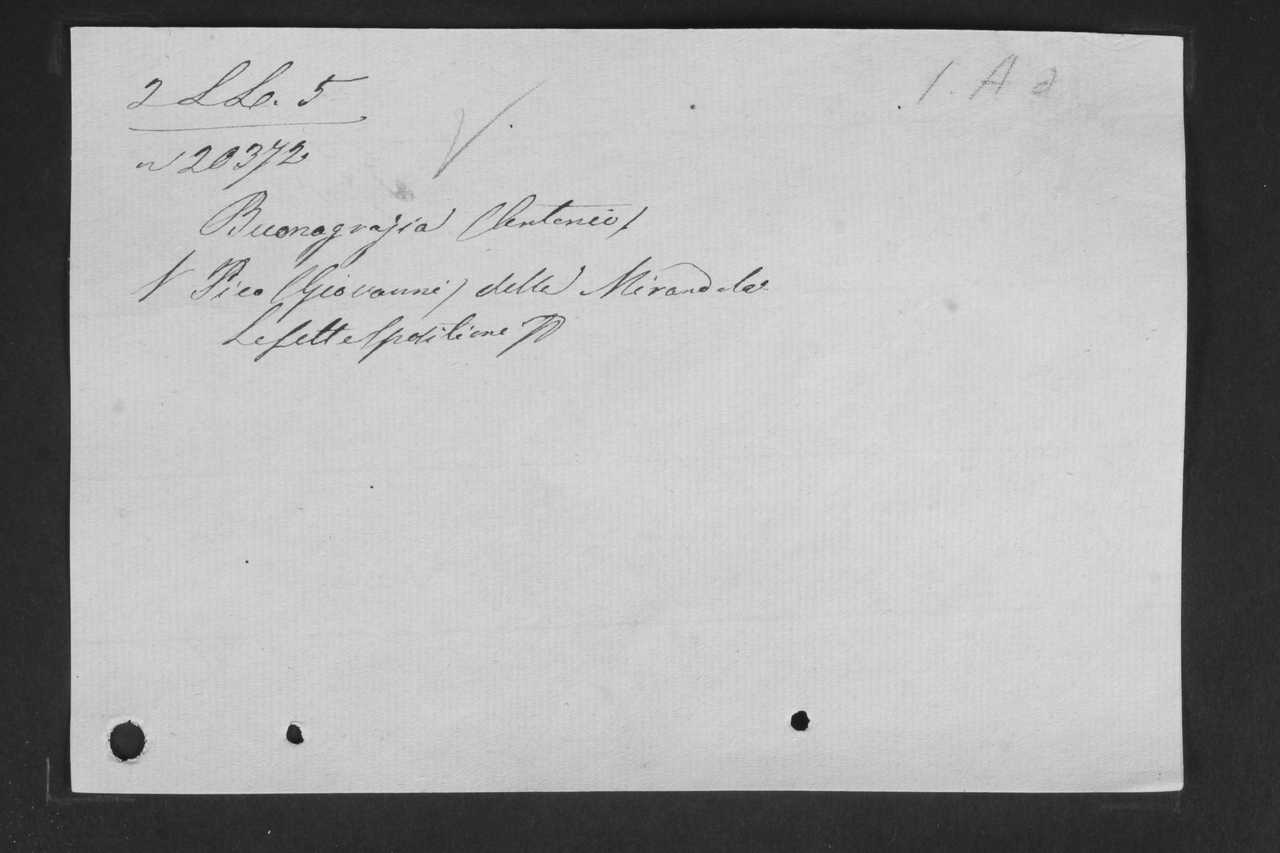 2 LL. 5
1. A a
n 20372
Buonagrazia (Antonio)
V Pico (Giovanni) della Mirandola
Le sette Spositione